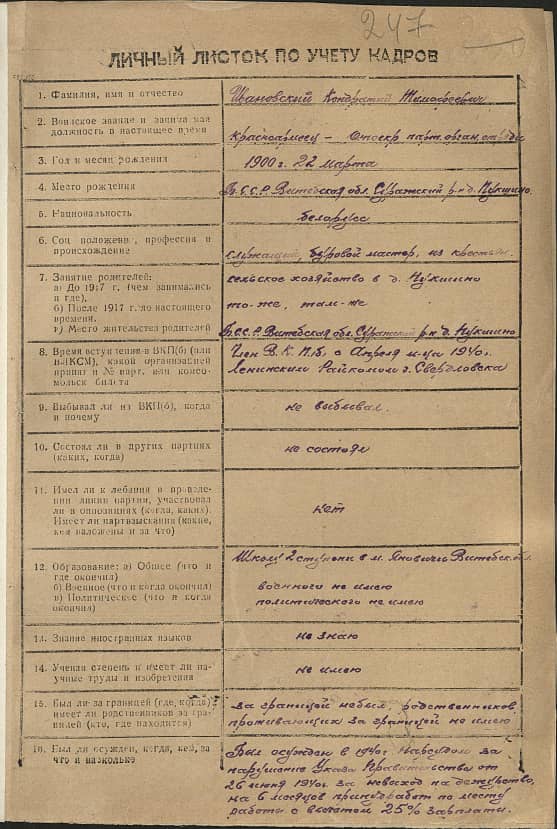 247
ЛИЧНЫЙ ЛИСТОК ПО УЧЕТУ КАДРОВ
1. Фамилия, имя и отчество
Шановский Кондратий Тимофеевич
2. Воинское звание и занимаемая
должность в настоящее время
Красноармеец – Отсекр парт. орган. отряда
3. Год и месяц рождения
1900 г. 22 марта
4. Место рождения
Б.С.С.Р. Витебская обл. Суражский р-н д. Пукшино
5. Национальность
белорусс
6. Соц положение, профессия и
происхождение
служащий, буровой мастер, из крестьян
7. Занятие родителей:
а) До 1917 г. (чем занимались
и где),
б) После 1917 г. до настоящего
времени.
г) Место жительства родителей
сельское хозяйство в д. Пукшино
то-же, там-же
Б.С.С.Р. Витебская обл. Суражский р-н д. Пукшино
8. Время вступления в ВКП(б) (или
ВЛКСМ), какой организацией
принят и № парт. или комсо-
мольск билета
Член В.К.П.(б). с Апреля м-ца 1940 г.
Ленинским Райкомом г. Свердловска
9. Выбывал ли из ВКП(б), когда
и почему
не выбывал.
10. Состоял ли в других партиях
(каких, когда)
не состоял
11. Имел ли колебания в проведе-
нии линии партии, участвовал
ли в оппозициях (когда, каких).
Имеет ли партвзыскания (какие,
кем наложены и за что)
нет
12. Образование: а) Общее (что и
где окончил)
б) Военное (что и когда окончил)
в) Политическое (что и когда
окончил)
Школу 2 ступени в м. Яновичи Витебск. обл.
военного не имею
политического не имею
13. Знание иностранных языков
не знаю
14. Ученая степень и имеет ли на-
учные труды и изобретения
не имею
15. Был ли за границей (где, когда)
имеет ли родственников за гра-
ницей (кто, где находится)
за границей небыл, родственников
проживающих за границей не имею
16. Был ли осужден, когда, кем, за
что и насколько
Был осужден в 1940 г. Нарсудом за
нарушение Указа Правительства от
26 июня 1940 г. за невыход на дежурство,
на 6 месяцев принудработ по месту
работы с вычетом 25% зарплаты.